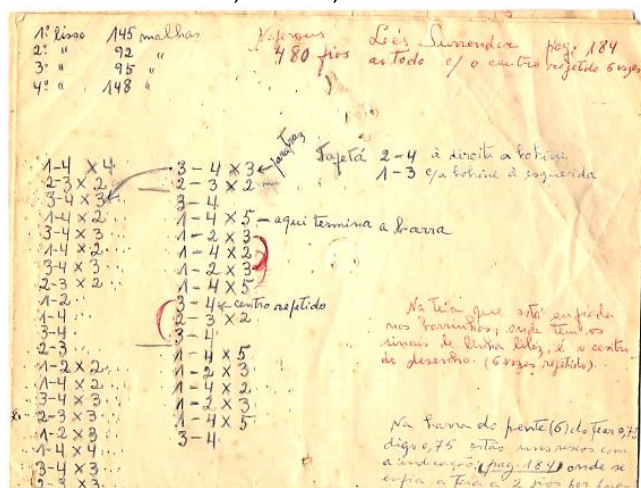 1º lisso 145 malhas
2º " 92 "
3º " 95 "
4º " 148 "
480 fios ao todo c/ o centro repetido 6 vezes
Lee's Surrender pag. 184
1-4 x 4
2-3 x 2
3-4 x 3
1-4 x 2
3-4 x 3
1-4 x 2
3-4 x 3
2-3 x 2
1-2
1-4
3-4
2-3
1-2 x 2
1-4 x 2
3-4 x 3
2-3 x 3
1-2 x 3
1-4 x 4
3-4 x 3
2-3 x 3
3-4 x 3
2-3 x 2
3-4
1-4 x 5 - aqui termina a barra
1-2 x 3
1-4 x 2
1-2 x 3
1-4 x 5
3-4 centro repetido
2-3 x 2
3-4
1-4 x 5
1-2 x 3
1-4 x 2
1-2 x 3
1-4 x 5
3-4
Tafetá 2-4 à direita a bobine
1-3 c/a bobine à esquerda
Na teia que está enfiada
nos borrinhos, onde tem os
sinais de linha lilez, é o centro
do desenho. (6 vezes repetido).
Na barra do pente (6) do tear 0,75
digo 0,75 estão uns riscos com
a indicação (pag. 184) onde se
enfia a teia a 2 fios por